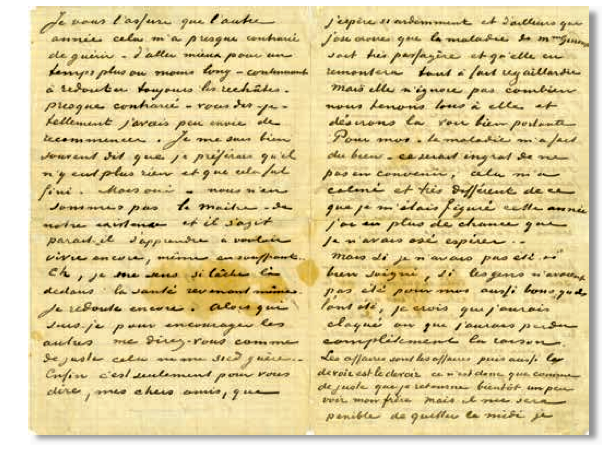 Je vous l'assure que l'autre
année cela m'a presque contrarié
de guérir - d'aller mieux pour un
temps plus ou moins long - continuant
à redouter toujours les rechûtes -
presque contrarié - vous dis-je -
tellement j'avais peu envie de
recommencer. Je me suis bien
souvent dit que je préférais qu'il
n'y eut plus rien et que cela fut
fini. Mais oui - nous n'en
sommes pas le maître - de
notre existence et il s'agit
parait-il d'apprendre à vouloir
vivre encore, même en souffrant.
Eh, je me sens si lâche là
dedans la santé revenant même
je redoute encore. Alors qui
suis-je pour encourager les
autres me direz-vous comme
de juste cela ne me sied guère..
Enfin c'est seulement pour vous
dire, mes chers amis, que
j'espère si ardemment et d'ailleurs que
j'ose croire que la maladie de Mme Ginoux
soit très passagère et qu'elle en
remontera tout à fait regaillardie
mais elle n'ignore pas combien
nous tenons tous à elle et
désirons la voir bien portante
Pour moi - la maladie m'a fait
du bien - ce serait ingrat de ne
pas en convenir, cela m'a
calmé et très différent de ce
que je m'étais figuré cette année
j'ai eu plus de chance que
je n'avais osé espérer..
Mais si je n'avais pas été si
bien soigné, si les gens n'avaient
pas été pour moi aussi bons qu'ils
l'ont été, je crois que j'aurais
claqué ou que j'aurais perdu
complètement la raison.
Les affaires sont les affaires puis aussi le
devoir est le devoir ce n'est donc que comme
de juste que je retourne bientôt un peu
voir mon frère mais il me sera
pénible de quitter le midi je